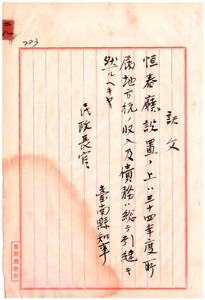 訳文
恒春廳設置ノ上ハ三十四年度所
屬地方税ノ收入及債務ハ總テ引継キ
然ルヘキヤ
臺南縣知事
民政長官
223